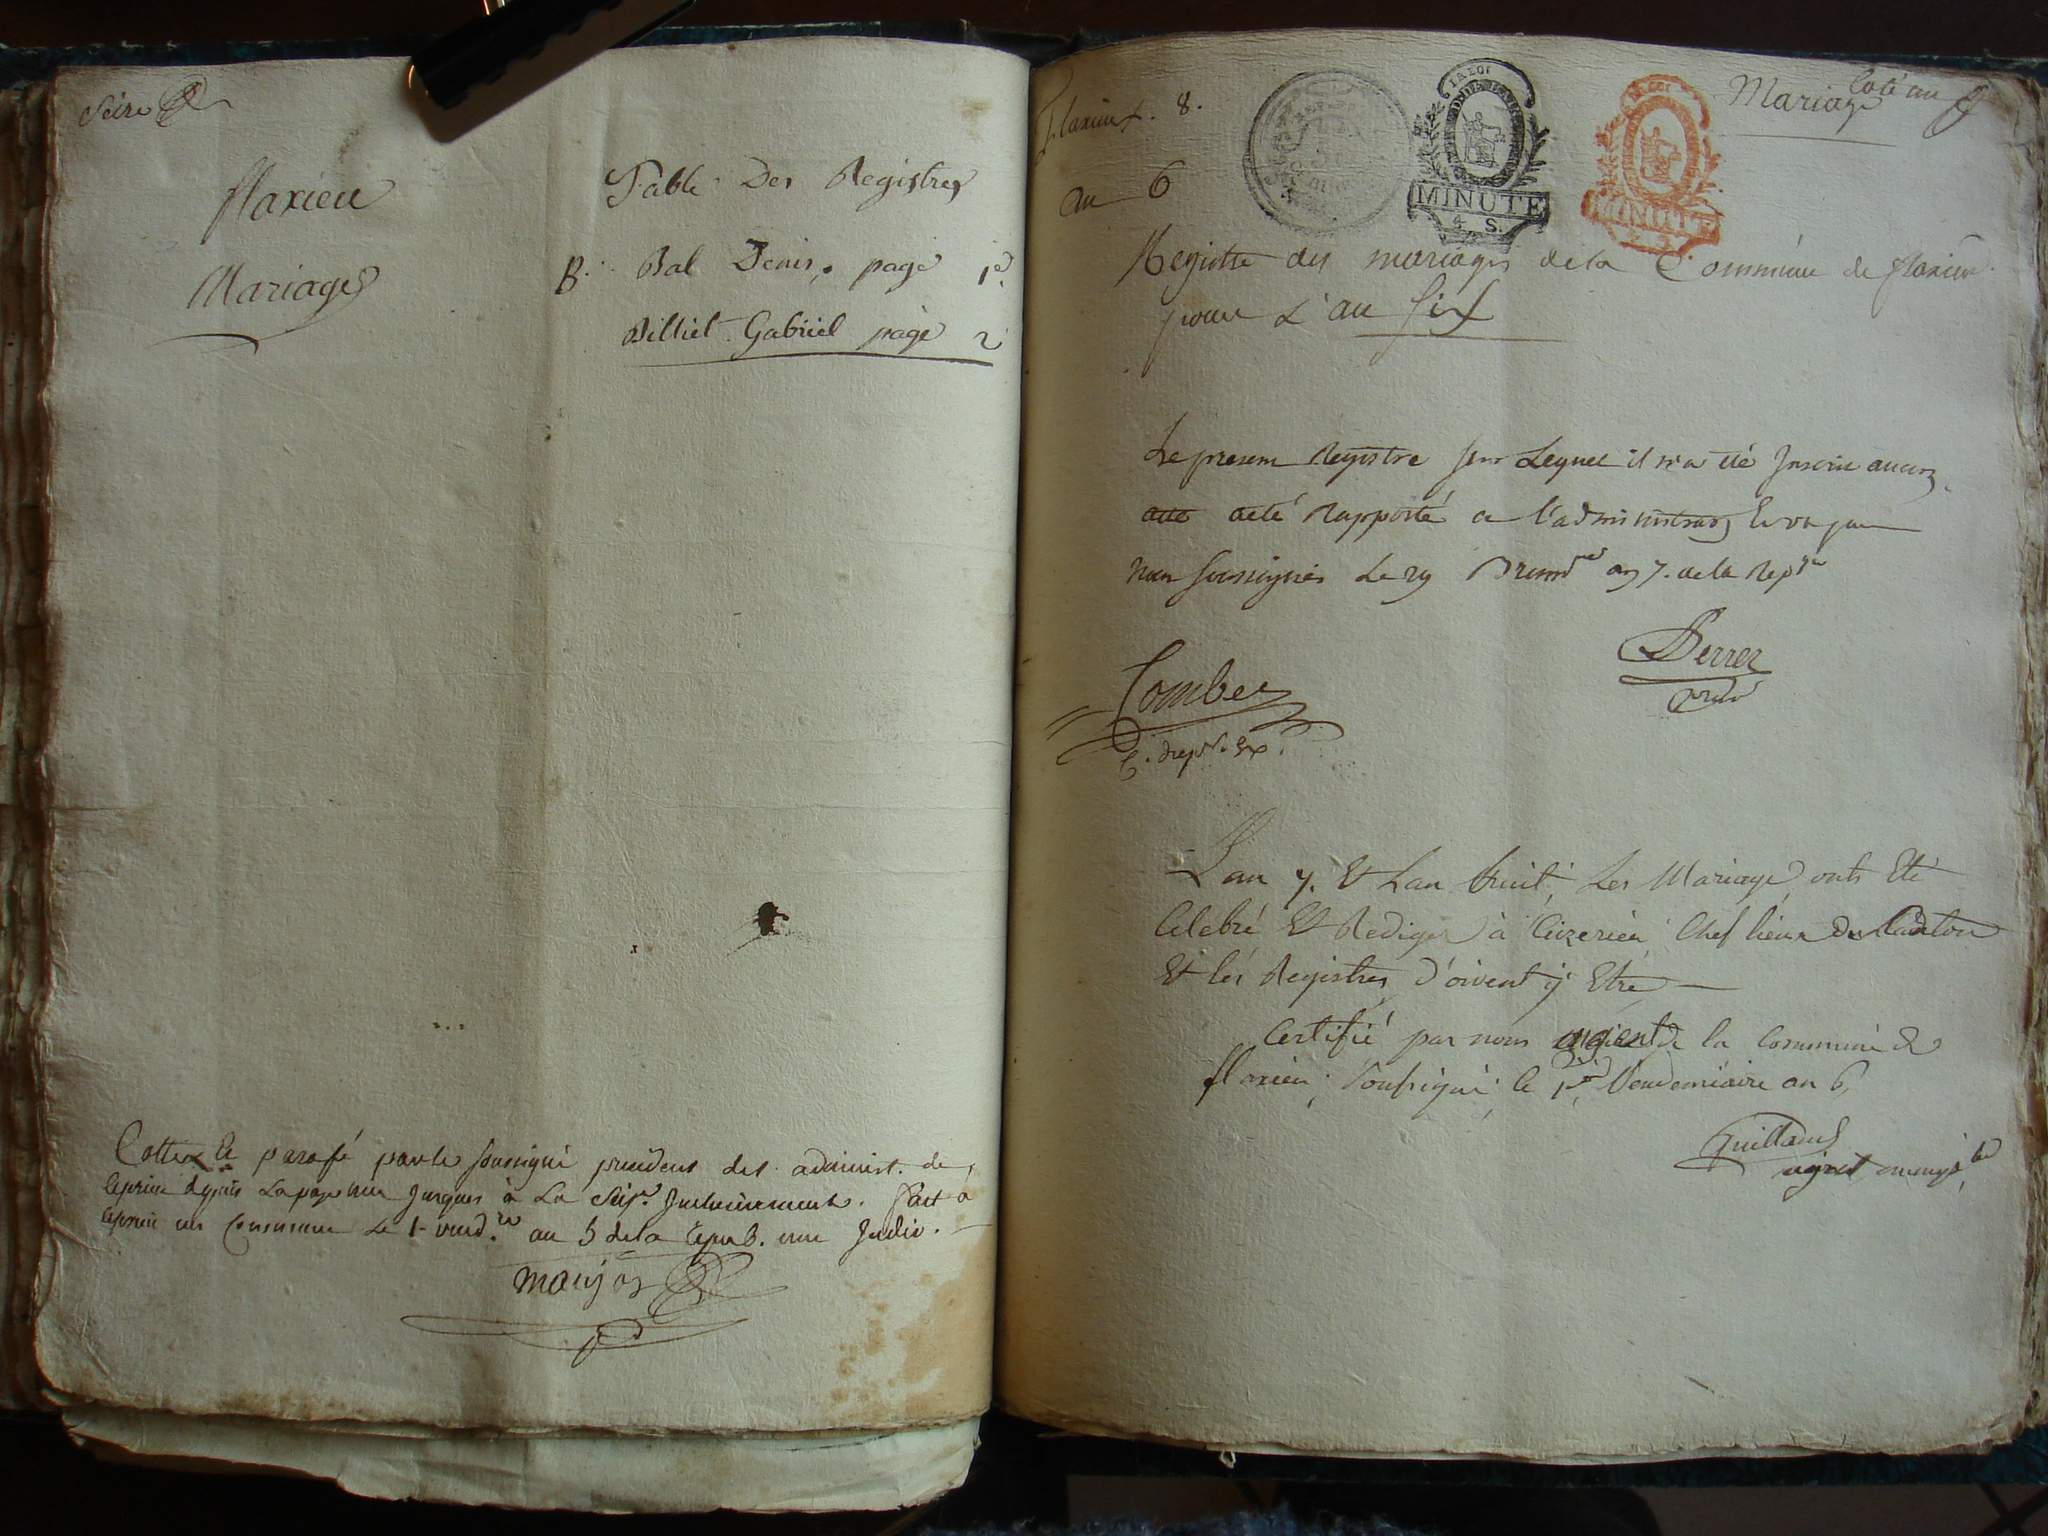 Seize
flaxieu
Mariages
Table Des Registres
B. Bal Denis, page 1.
Billiet Gabriel page 2
Cotté et parafé par le soussigné president des administ. de
depuis la page une jusques à la seize inclusivement. fait à
en Commune le 1 vend.re an 5 de la repub. une
flaxieu. 8.
Mariage
Coté un
an 6
MINUTE
4 S.
MINUTE
Registre des mariages de la Commune de flaxieu.
pour L'an six
Le present Registre sur Lequel il n'a été Inscrit aucun
acte Rapporté a l'administraon
nous soussignés Le 29 Brumre an 7. de la Repque
Berrer
Combet
L'an 7. Et Lan huit, Les Mariage onts Eté
Celebré Et Rediger à Ceizerieu Chef lieux du Canton
Et les Registres d'oivent y Etre —
Certifié par nous agent de la Commune de
flaxieu, Soussigné le 1er Vendemiaire an 6,
Guilland
agent